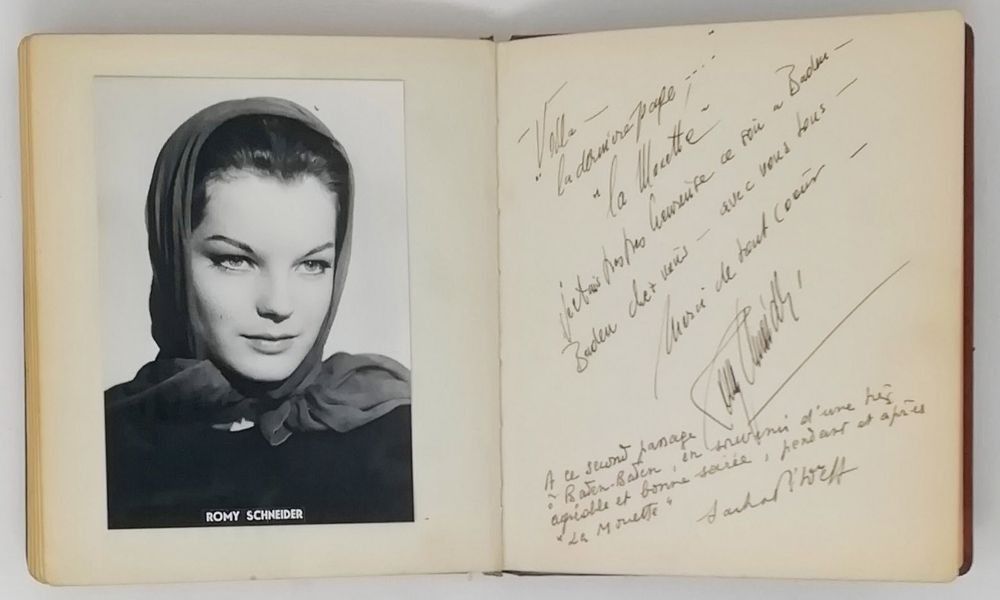 ROMY SCHNEIDER
- Voilà -
"la dernière page, ...."
"la Mouette"
j'étais très très heureuse ce soir à Baden-
Baden chez vous - avec vous tous -
Merci de tout coeur -
Romy Schneider
A ce second passage
à Baden-Baden, en souvenir d'une très
agréable et bonne soirée, pendant et après
"La Mouette"
Sacha Pitoëff